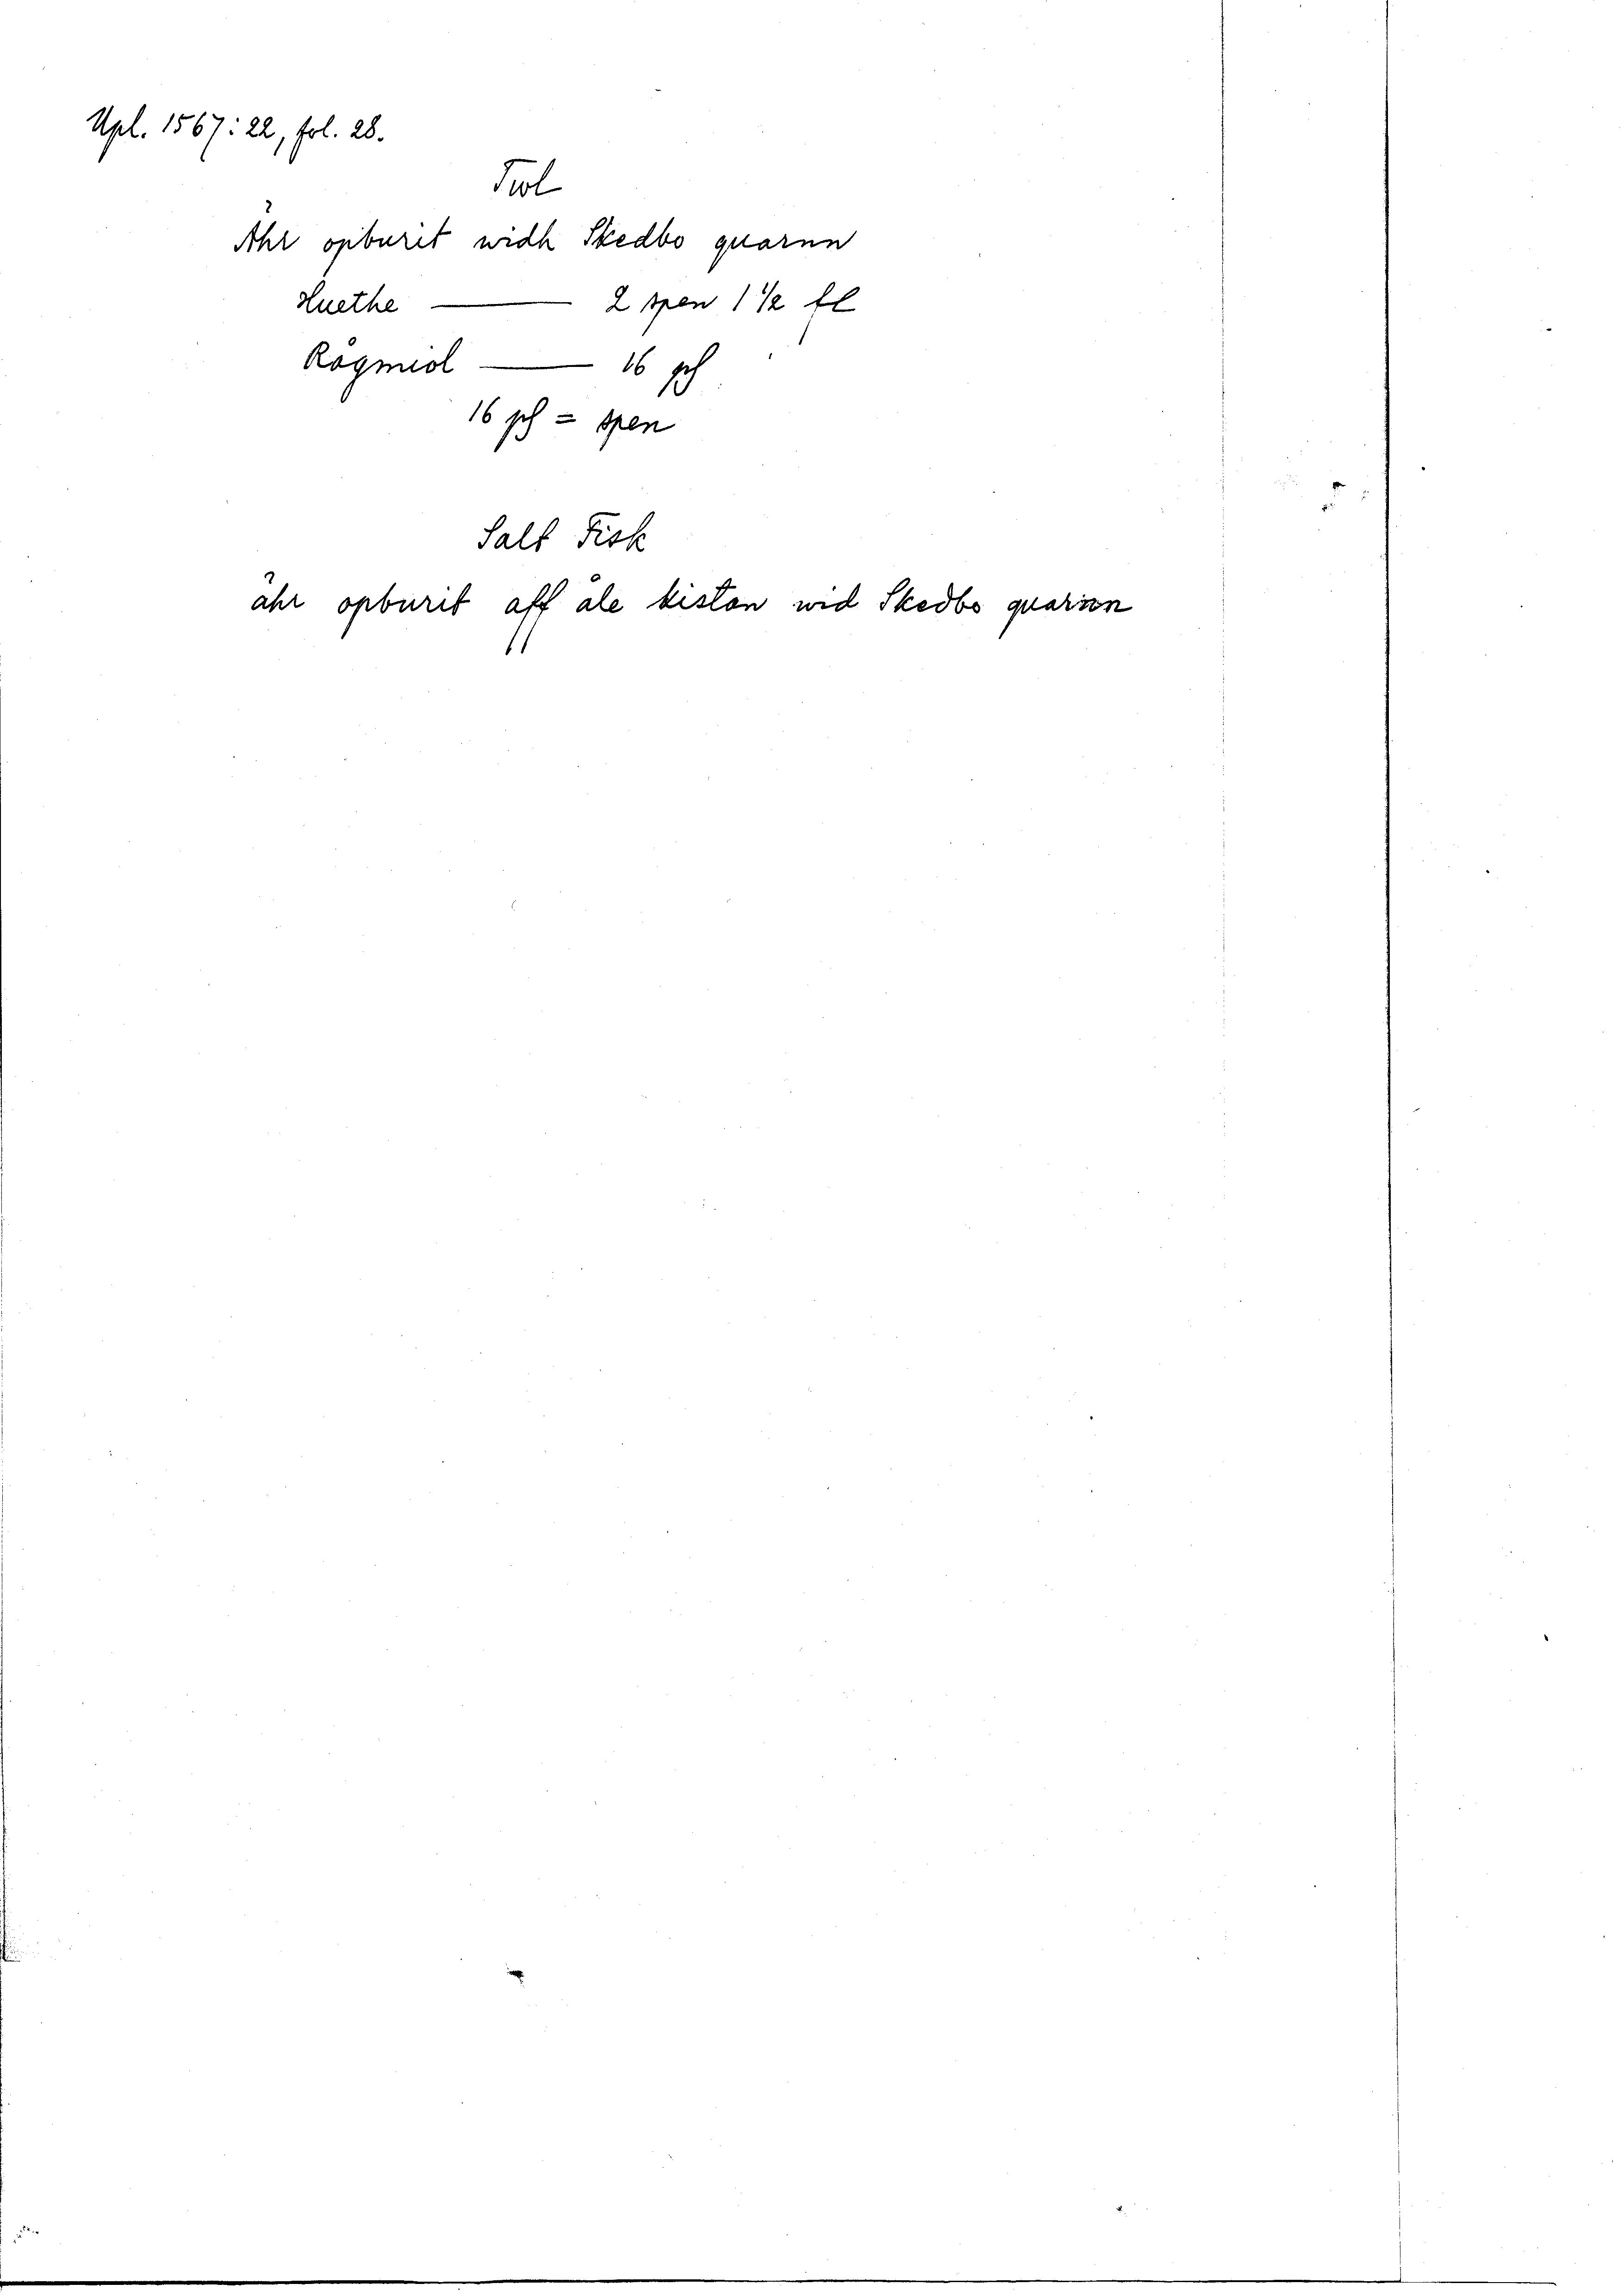 Upl. 1567: 22, fol. 28.
Tul
Åhr opburit widh Skedbo quarnn
Huethe — 2 spen 1 1/2 fl
Rögmiol — 16
16 = spen
Salt Fisk
åhr opburit aff åle kistan wid Skedbo quarnn